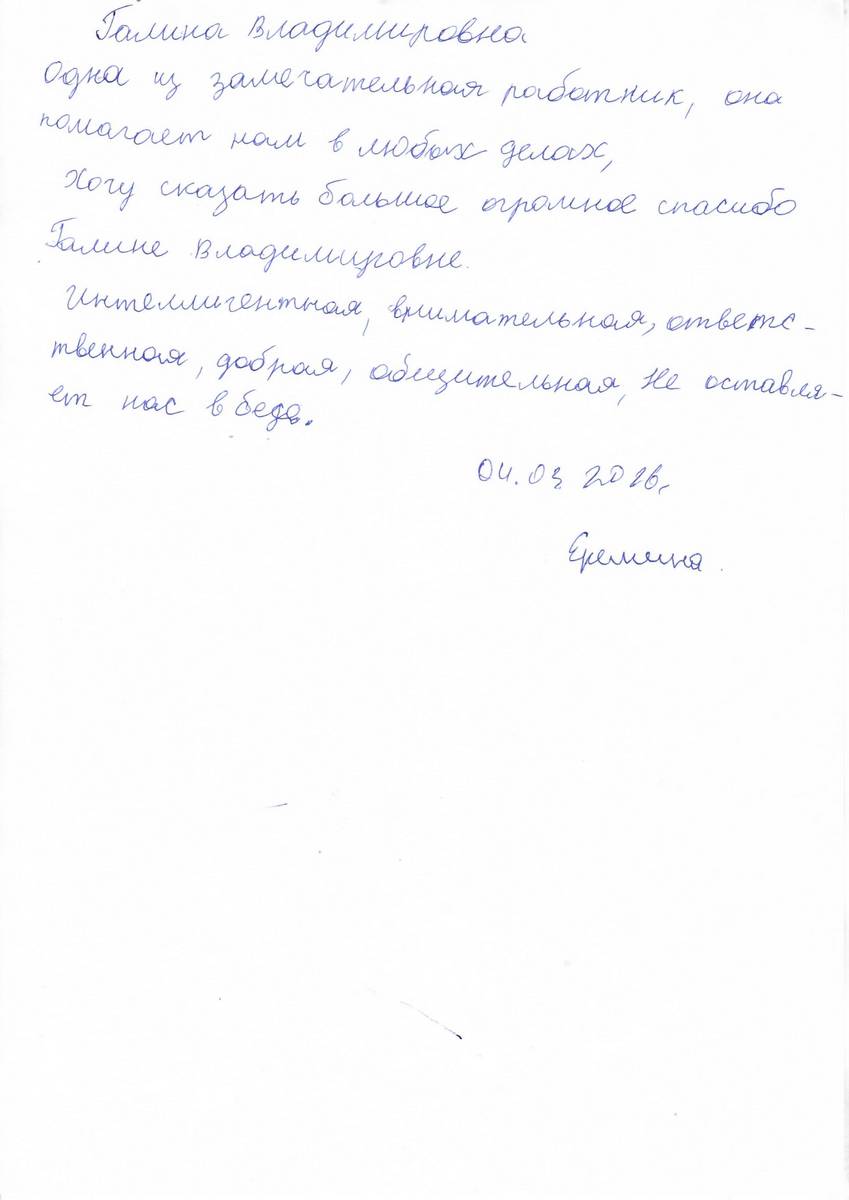 Галина Владимировна
Одна из замечательная работник, она
помагает нам в любых делах,
Хочу сказать большое огромное спасибо
Галине Владимировне.
Интеллигентная, внимательная, ответс-
твенная, добрая, общительная, Не оставля-
ет нас в беде.
04.03 2016.
Еремина.